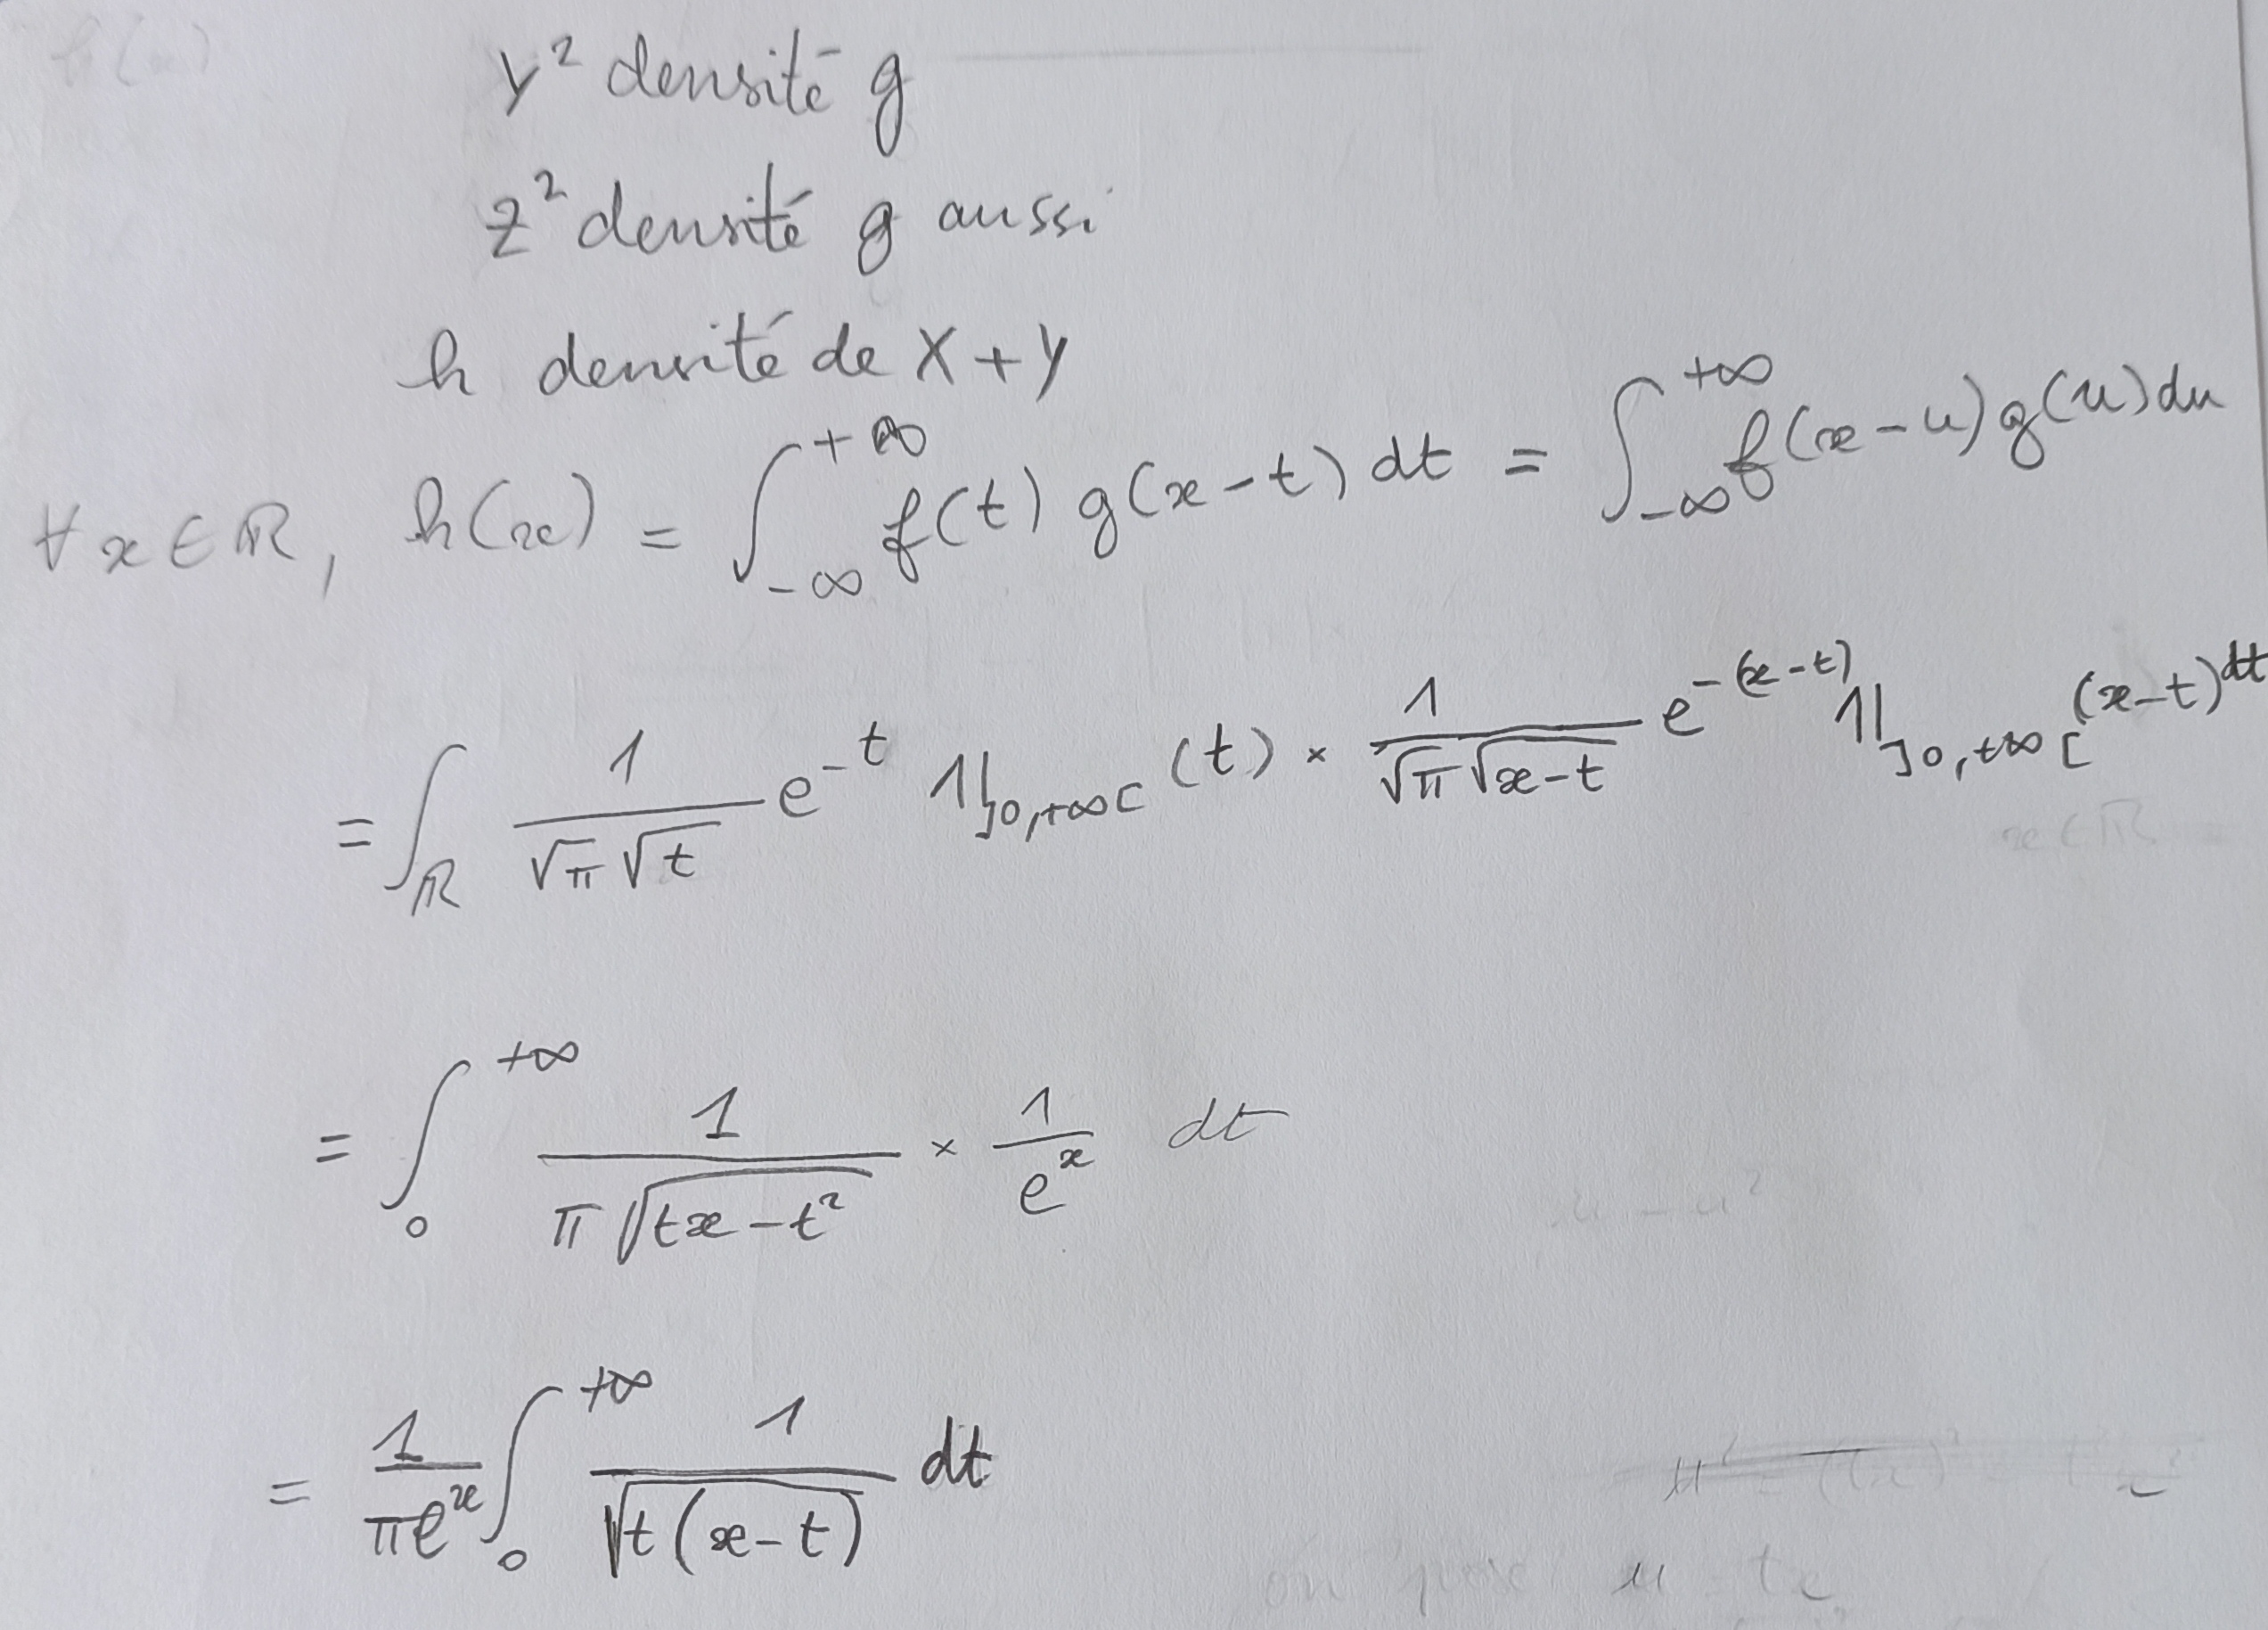 h(x)
Y² densité g
Z² densité g aussi
h densité de X+Y
∀x∈ℝ, h(x) = ∫_{-∞}^{+∞} f(t) g(x-t) dt = ∫_{-∞}^{+∞} f(x-u) g(u) du
= ∫_ℝ 1/(√π √t) e^{-t} 𝟙_{]0,+∞[}(t) × 1/(√π √(x-t)) e^{-(x-t)} 𝟙_{]0,+∞[}(x-t) dt
x∈ℝ
= ∫_0^{+∞} 1/(π√(tx-t²)) × 1/e^x dt
u-u²
= 1/(πe^x) ∫_0^{+∞} 1/√(t(x-t)) dt
on pose u = tx